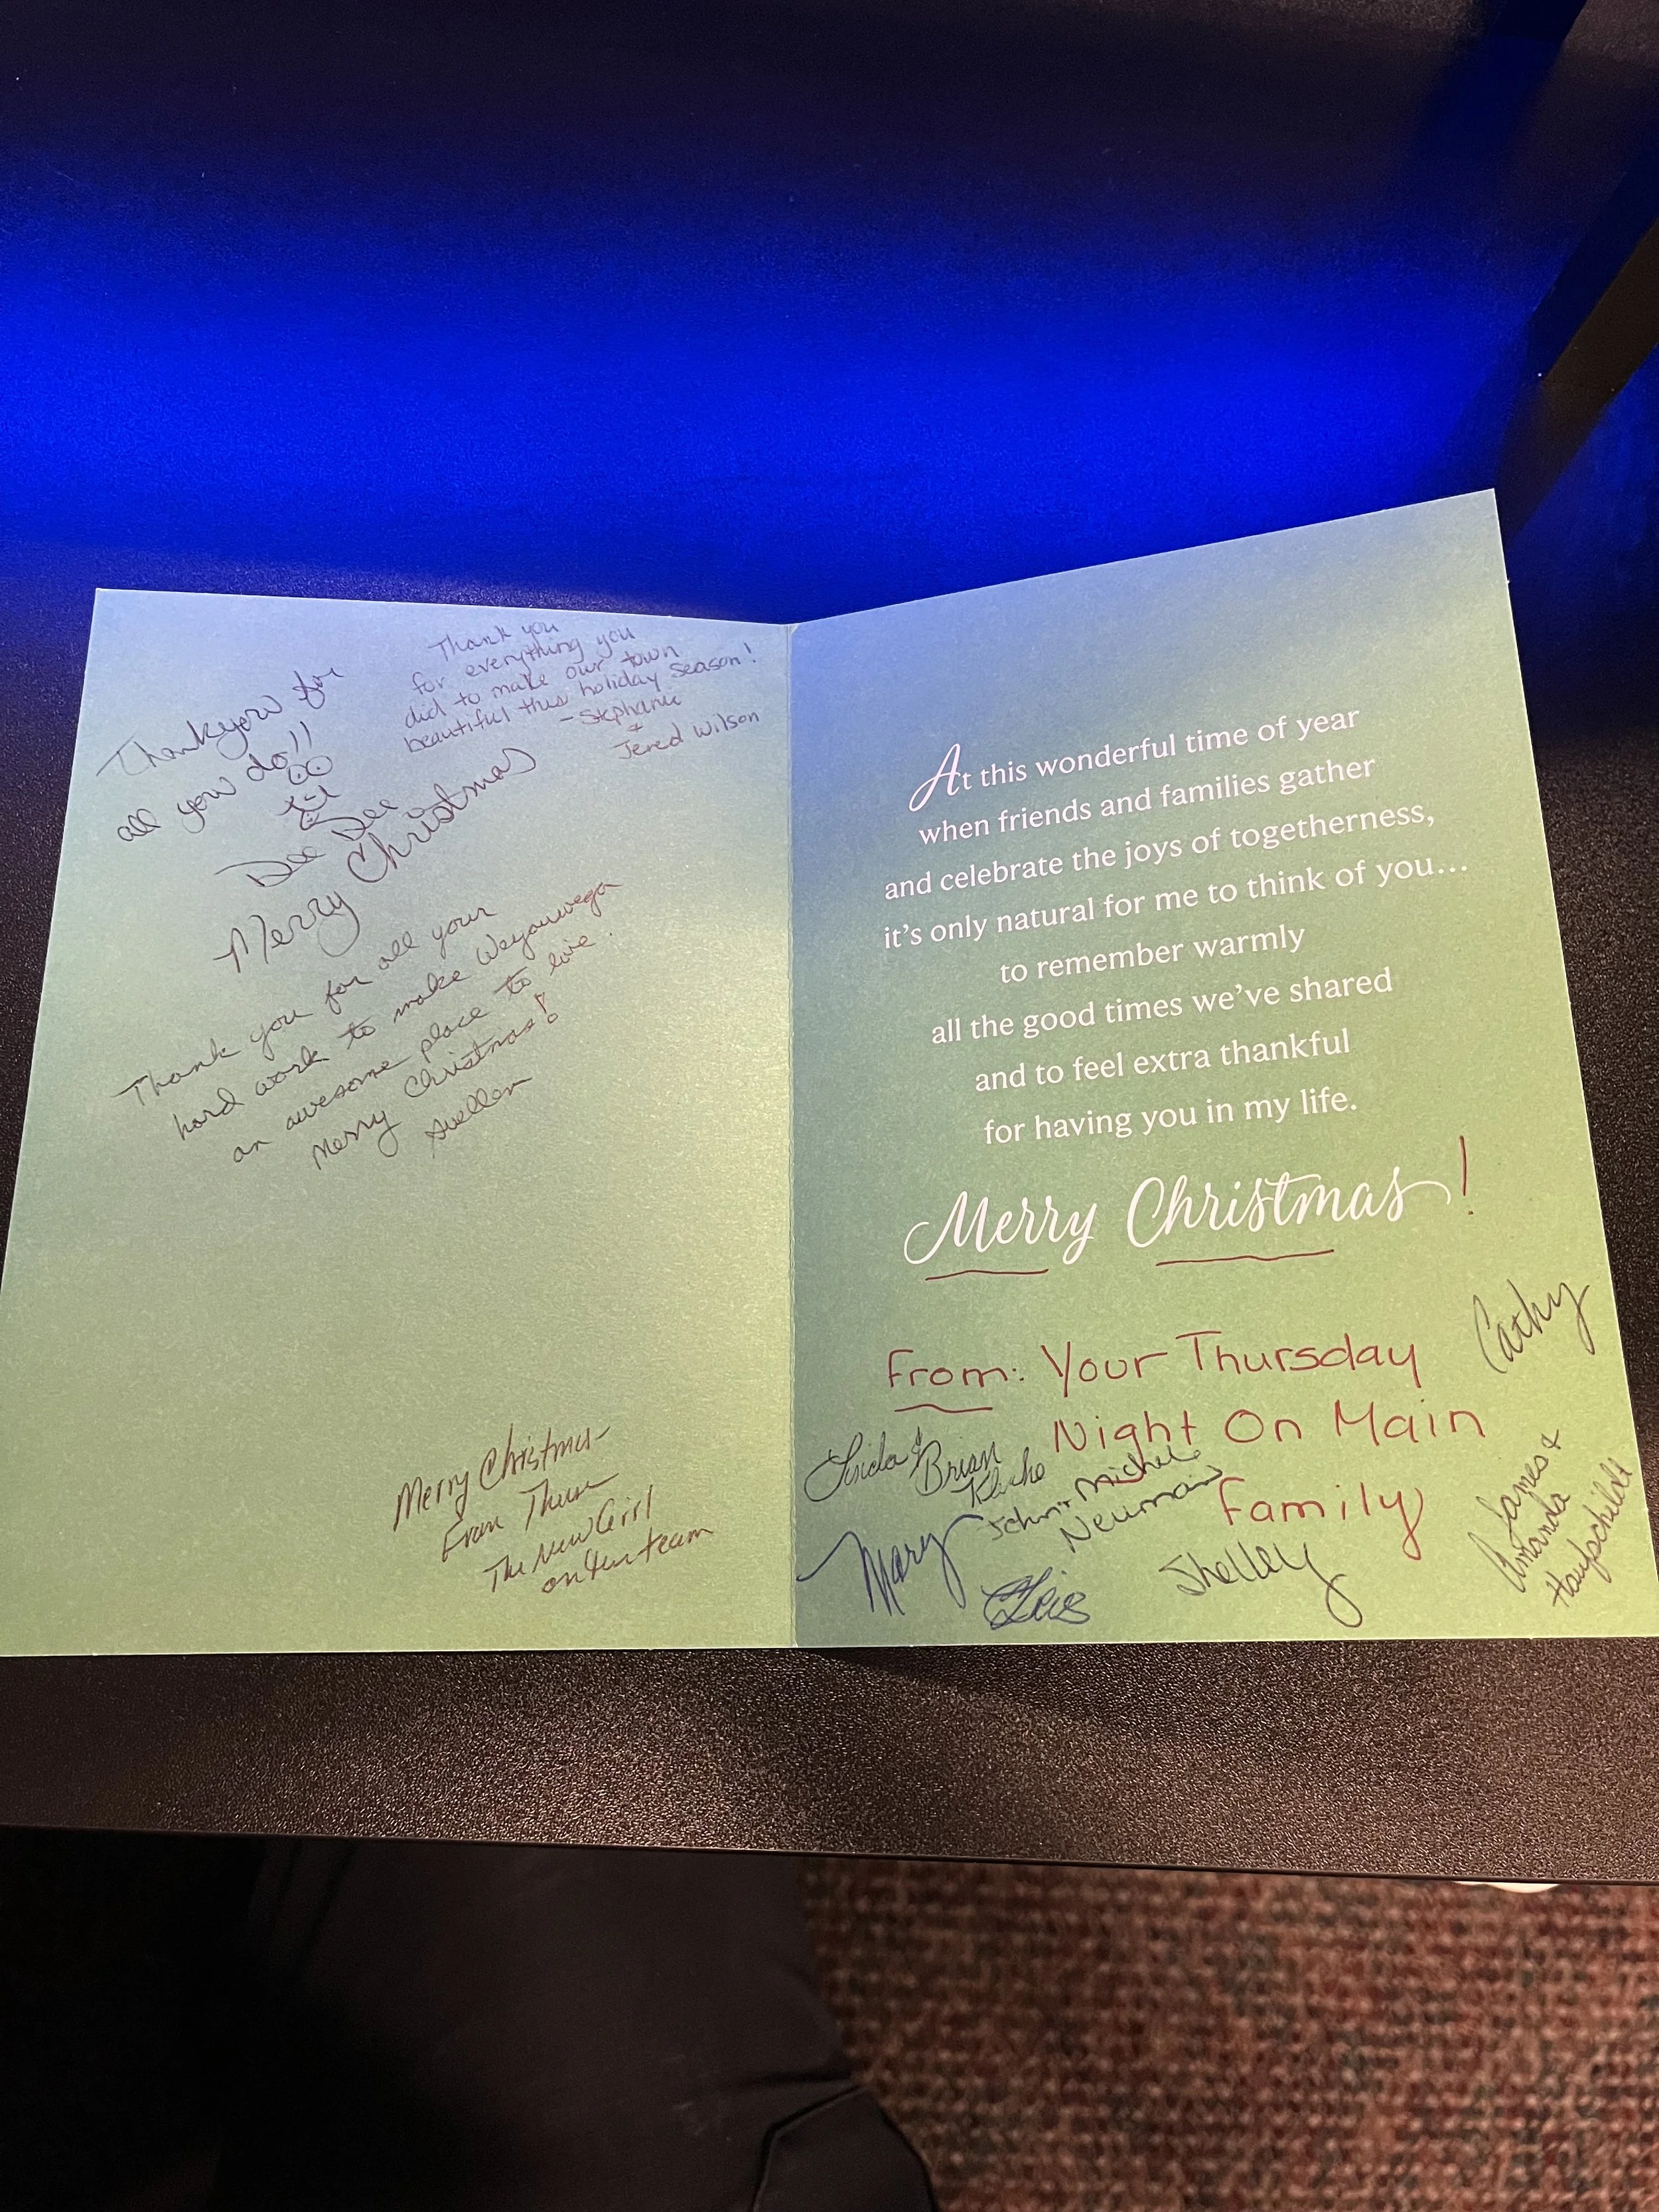 Thank you for
all you do!!
Dee Dee
Merry Christmas
Thank you
for everything you
did to make our town
beautiful this holiday season!
- Stephanie
+
Jered Wilson
Thank you for all your
hard work to make Weyauwega
an awesome place to live!
Merry Christmas!
Suellen
Merry Christmas
From
The New Girl
on team
At this wonderful time of year
when friends and families gather
and celebrate the joys of togetherness,
it's only natural for me to think of you...
to remember warmly
all the good times we've shared
and to feel extra thankful
for having you in my life.
Merry Christmas!
From: Your Thursday
Night On Main
Family
Cathy
Linda & Brian
John + Michele
Neuman
Mary
Shelley
James &
Amanda
Haufschildt